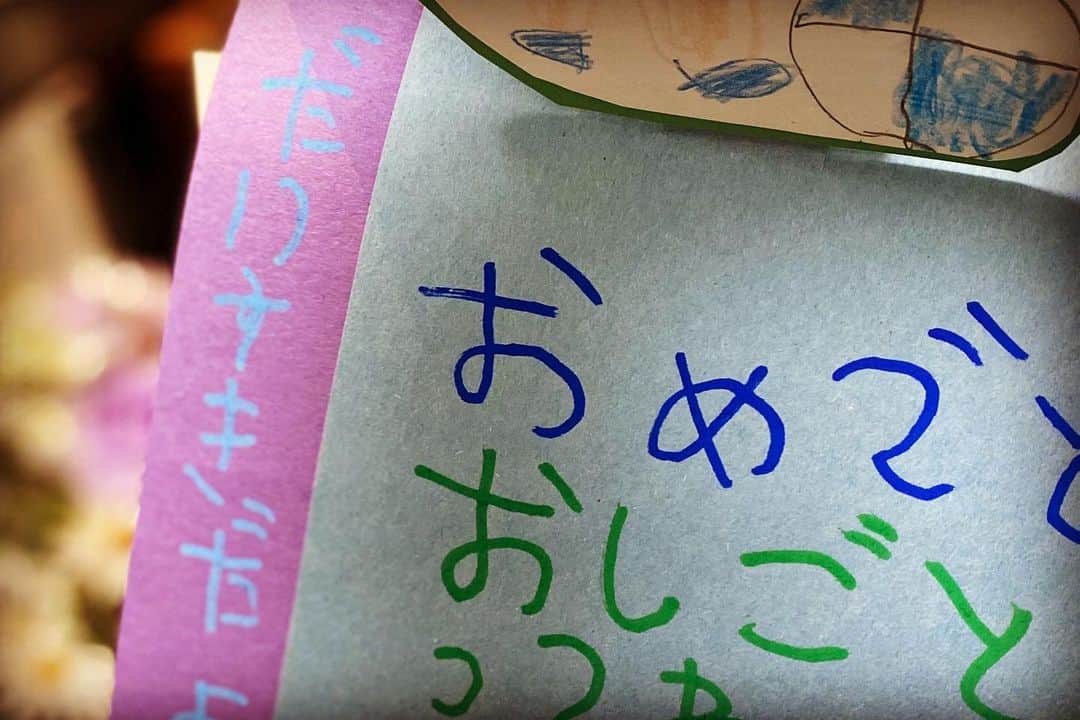 だいすきだよ
おめでと
おしごと